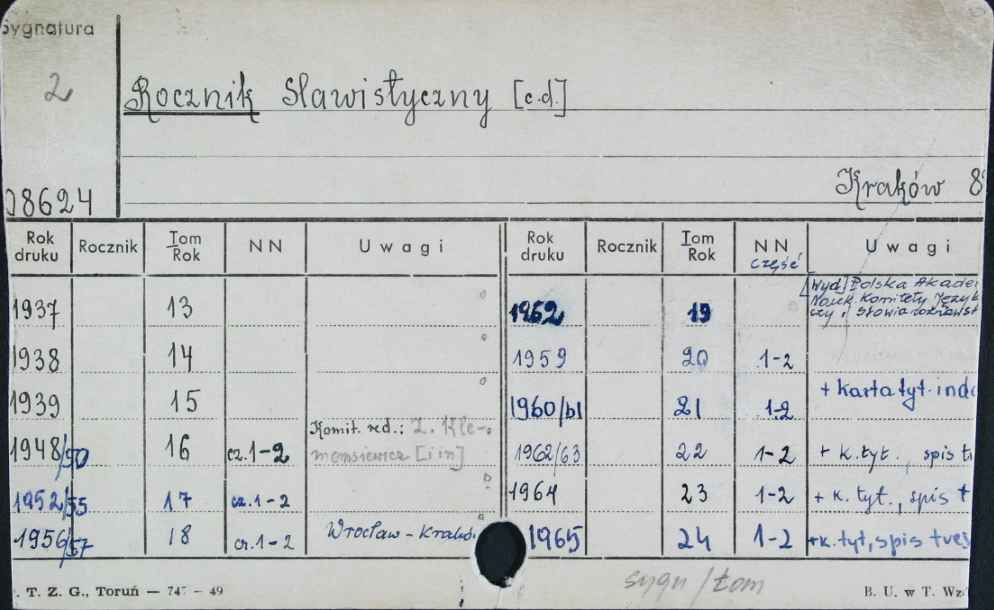 Sygnatura
2
Rocznik Slawistyczny [c.d.]
Kraków 8
08624
Rok druku Rocznik Tom Rok NN Uwagi Rok druku Rocznik Tom Rok NN część Uwagi
1937 13
1938 14
1939 15
1948/50 16 cz. 1-2 Komit. red.: Z. Kle-
mensiewicz [i in]
1952/55 17 cz. 1-2
1956/57 18 cz. 1-2 Wrocław - Kraków
1962 19 [Wyd.] Polska Akade
Nauk. Komitety Język
czy i Słowianoznawst
1959 20 1-2
1960/61 21 1-2 + karta tyt. inde
1962/63 22 1-2 + k. tyt., spis t
1964 23 1-2 + k. tyt., spis t
1965 24 1-2 + k. tyt, spis treś
sygn/tom
T. Z. G., Toruń — 747 — 49
B. U. w T. Wz